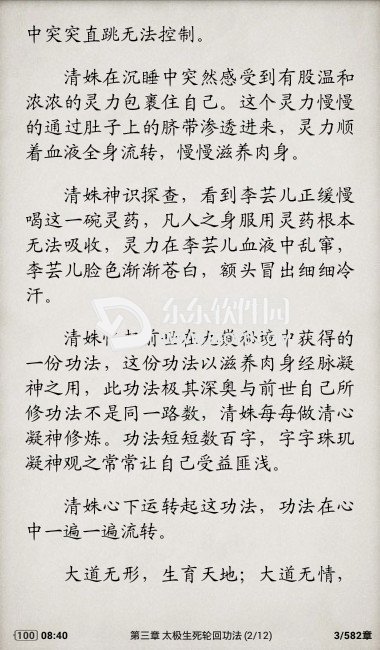 中突突直跳无法控制。
清姝在沉睡中突然感受到有股温和
浓浓的灵力包裹住自己。这个灵力慢慢
的通过肚子上的脐带渗透进来，灵力顺
着血液全身流转，慢慢滋养肉身。
清姝神识探查，看到李芸儿正缓慢
喝这一碗灵药，凡人之身服用灵药根本
无法吸收，灵力在李芸儿血液中乱窜，
李芸儿脸色渐渐苍白，额头冒出细细冷
汗。
东东软件园
清姝 前 在九 秘境中获得的
一份功法，这份功法以滋养肉身经脉凝
神之用，此功法极其深奥与前世自己所
修功法不是同一路数，清姝每每做清心
凝神修炼。功法短短数百字，字字珠玑
凝神观之常常让自己受益匪浅。
清姝心下运转起这功法，功法在心
中一遍一遍流转。
大道无形，生育天地；大道无情，
100 08:40 第三章 太极生死轮回功法 (2/12) 3/582章